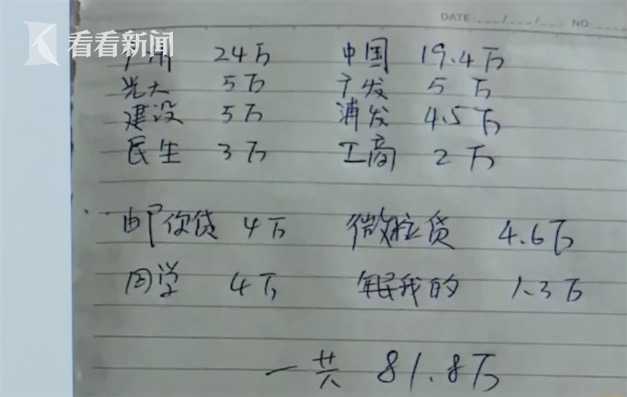 DATE ..../..../.... NO.
看看新闻
24万 中国 19.4万
光大 5万 广发 5万
建设 5万 浦发 4.5万
民生 3万 工商 2万
邮你贷 4万 微粒贷 4.6万
同学 4万 我的 1.3万
一共 81.8万